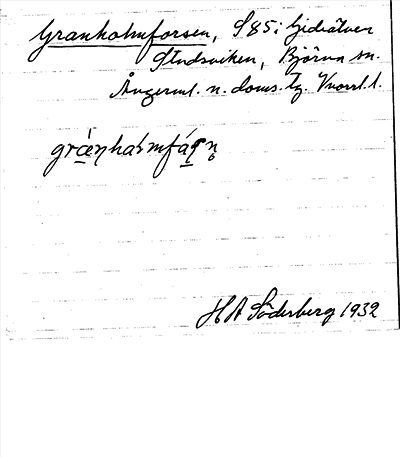 Granholmforsen, S 85 i Gideälven
Studsviken, Björna sn.
Ångerml. n. doms. tg. Vnorrl. l.
græ̀nhaɫmfáʂn̥
H A Söderberg 1932